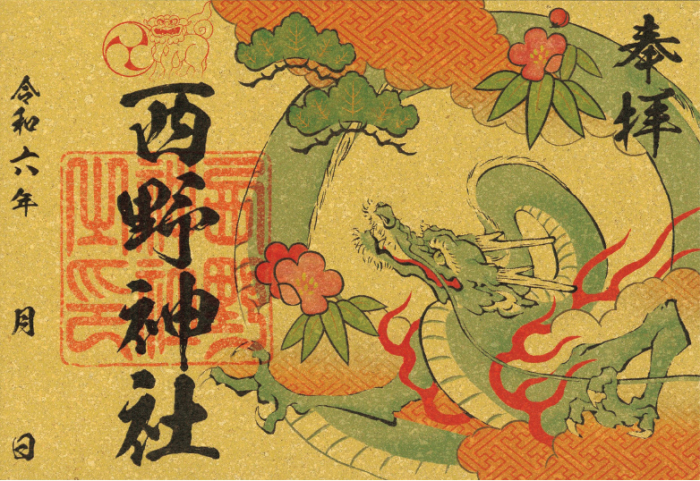 奉拝
西野神社
西野神社之印
令和六年　月　日